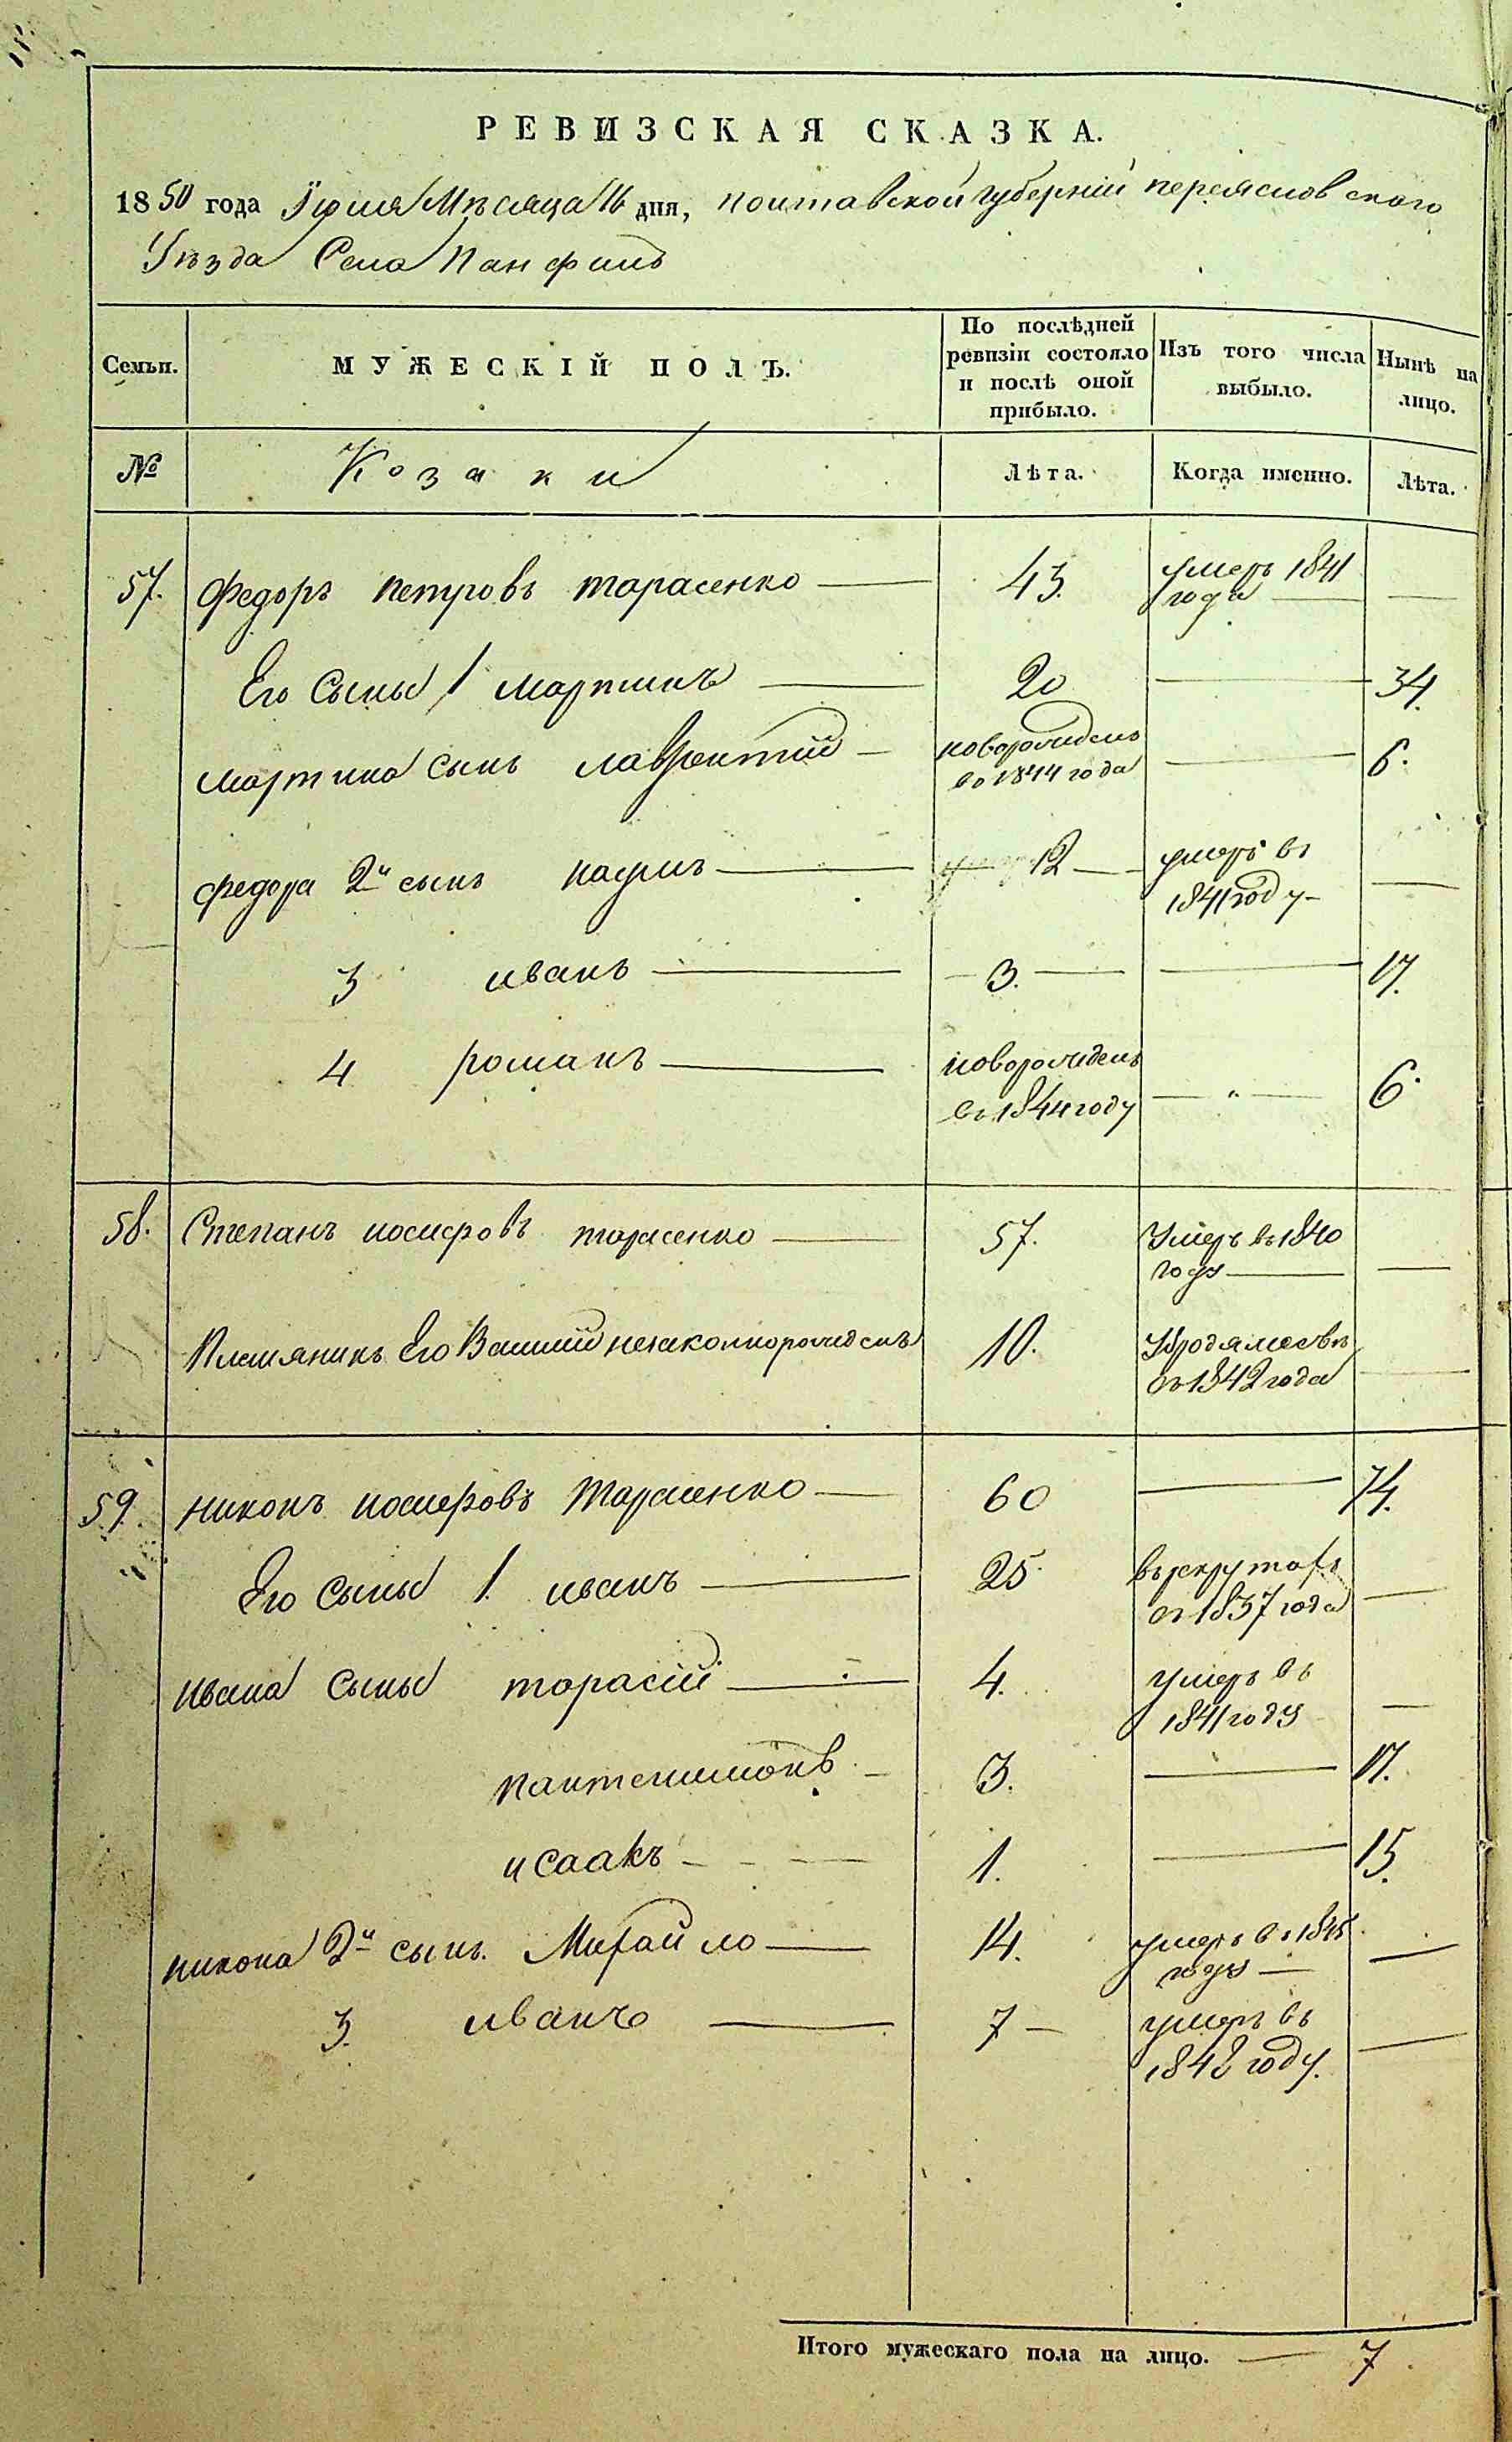 РЕВИЗСКАЯ СКАЗКА.
1850 года Іюля Мѣсяца 16 дня, полтавской губерніи переяславского
Уѣзда Села Панфилъ
Семьи.
МУЖЕСКІЙ ПОЛЪ.
По послѣдней ревизіи состояло и послѣ оной прибыло.
Изъ того числа выбыло.
Нынѣ на лицо.
№
Козаки
Лѣта.
Когда именно.
Лѣта.
57. Федоръ петровъ тарасенко — 43. умеръ 1841
года — —
Его Сыны 1 мартинъ — 20 — 34.
мартина сынъ лаврентій — новорожденъ
во 1844 года — 6.
федора 2й сынъ наумъ — 12 — умеръ въ
1841 году — —
3 иванъ — 3. — — 17.
4 романъ — новорожденъ
въ 1844 году — „ — 6.
58. Степанъ иосифовъ тарасенко — 57. Умеръ въ 1840
году — —
Племянникъ Его Василій незаконнорожденъ 10. въ
съ 1842 года —
59. никонъ иосифовъ Тарасенко — 60 — 74.
Его Сыны 1. иванъ — 25. въ рекрутахъ
съ 1837 года —
ивана Сыны тарасій — 4. умеръ въ
1841 году —
пантелимонъ — 3. — 17.
исаакъ — 1. — 15.
никона 2й сынъ. Михайло — 14. умеръ въ 1845
году — —
3. иванъ — 7 — умеръ въ
1842 году. —
Итого мужескаго пола на лицо. — 7